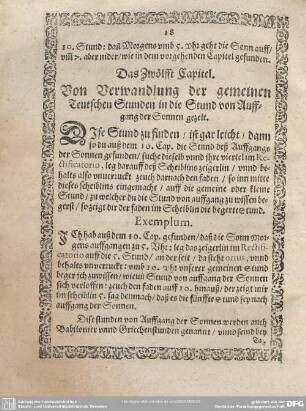 18
10. Stund: daß Morgens vmb 5. Vhr geht die Sonn auff/
viij >. aber nider/ wie in dem vorgehenden Capitel gefunden.
Das Zwölfft Capitel.
Von Verwandlung der gemeinen
Teutschen Stunden in die Stund von Auff-
gang der Sonnen gezelt.
DIse Stund zu finden / ist gar leicht / dann
so du auß dem 10. Cap. die Stund deß Auffgangs
der Sonnen gefunden / suche dieselb vnnd ihre viertel im Re-
ctificatorio, leg darauff deß Scheiblins zeigerlin / vnnd be-
halts also vnuerruckt zeuch darnach den faden / so im mitte
dieses scheiblins eingemacht / auff die gemeine oder kleine
Stund / zu welcher du die Stund von auffgang zu wissen be-
gerst / so zeigt dir der faden im Scheiblin die begerte stund.
Exemplum.
ICh hab auß dem 10. Cap. gefunden / daß die Sonn Mor-
gens auffgangen zu 5. Vhr: leg das zeigerlin im Rectifi-
catorio auff die 5. Stund / an der seit / da steht ortus, vnnd
behalts vnuerruckt: vmb 10. Vhr vnserer gemeinen stund
beger ich zuwissen / wieuil Stund von auffgang der Sonnen
sich verloffen: zeuch den faden auff 10. hinauß / der zeigt mir
im scheiblin 5. sag demnach / daß es die fünffte stund sey nach
auffgang der Sonnen.
Dise stunden von Auffgang der Sonnen werden auch
Babilonier vnnd Griechenstunden genannt / vnnd seind bey